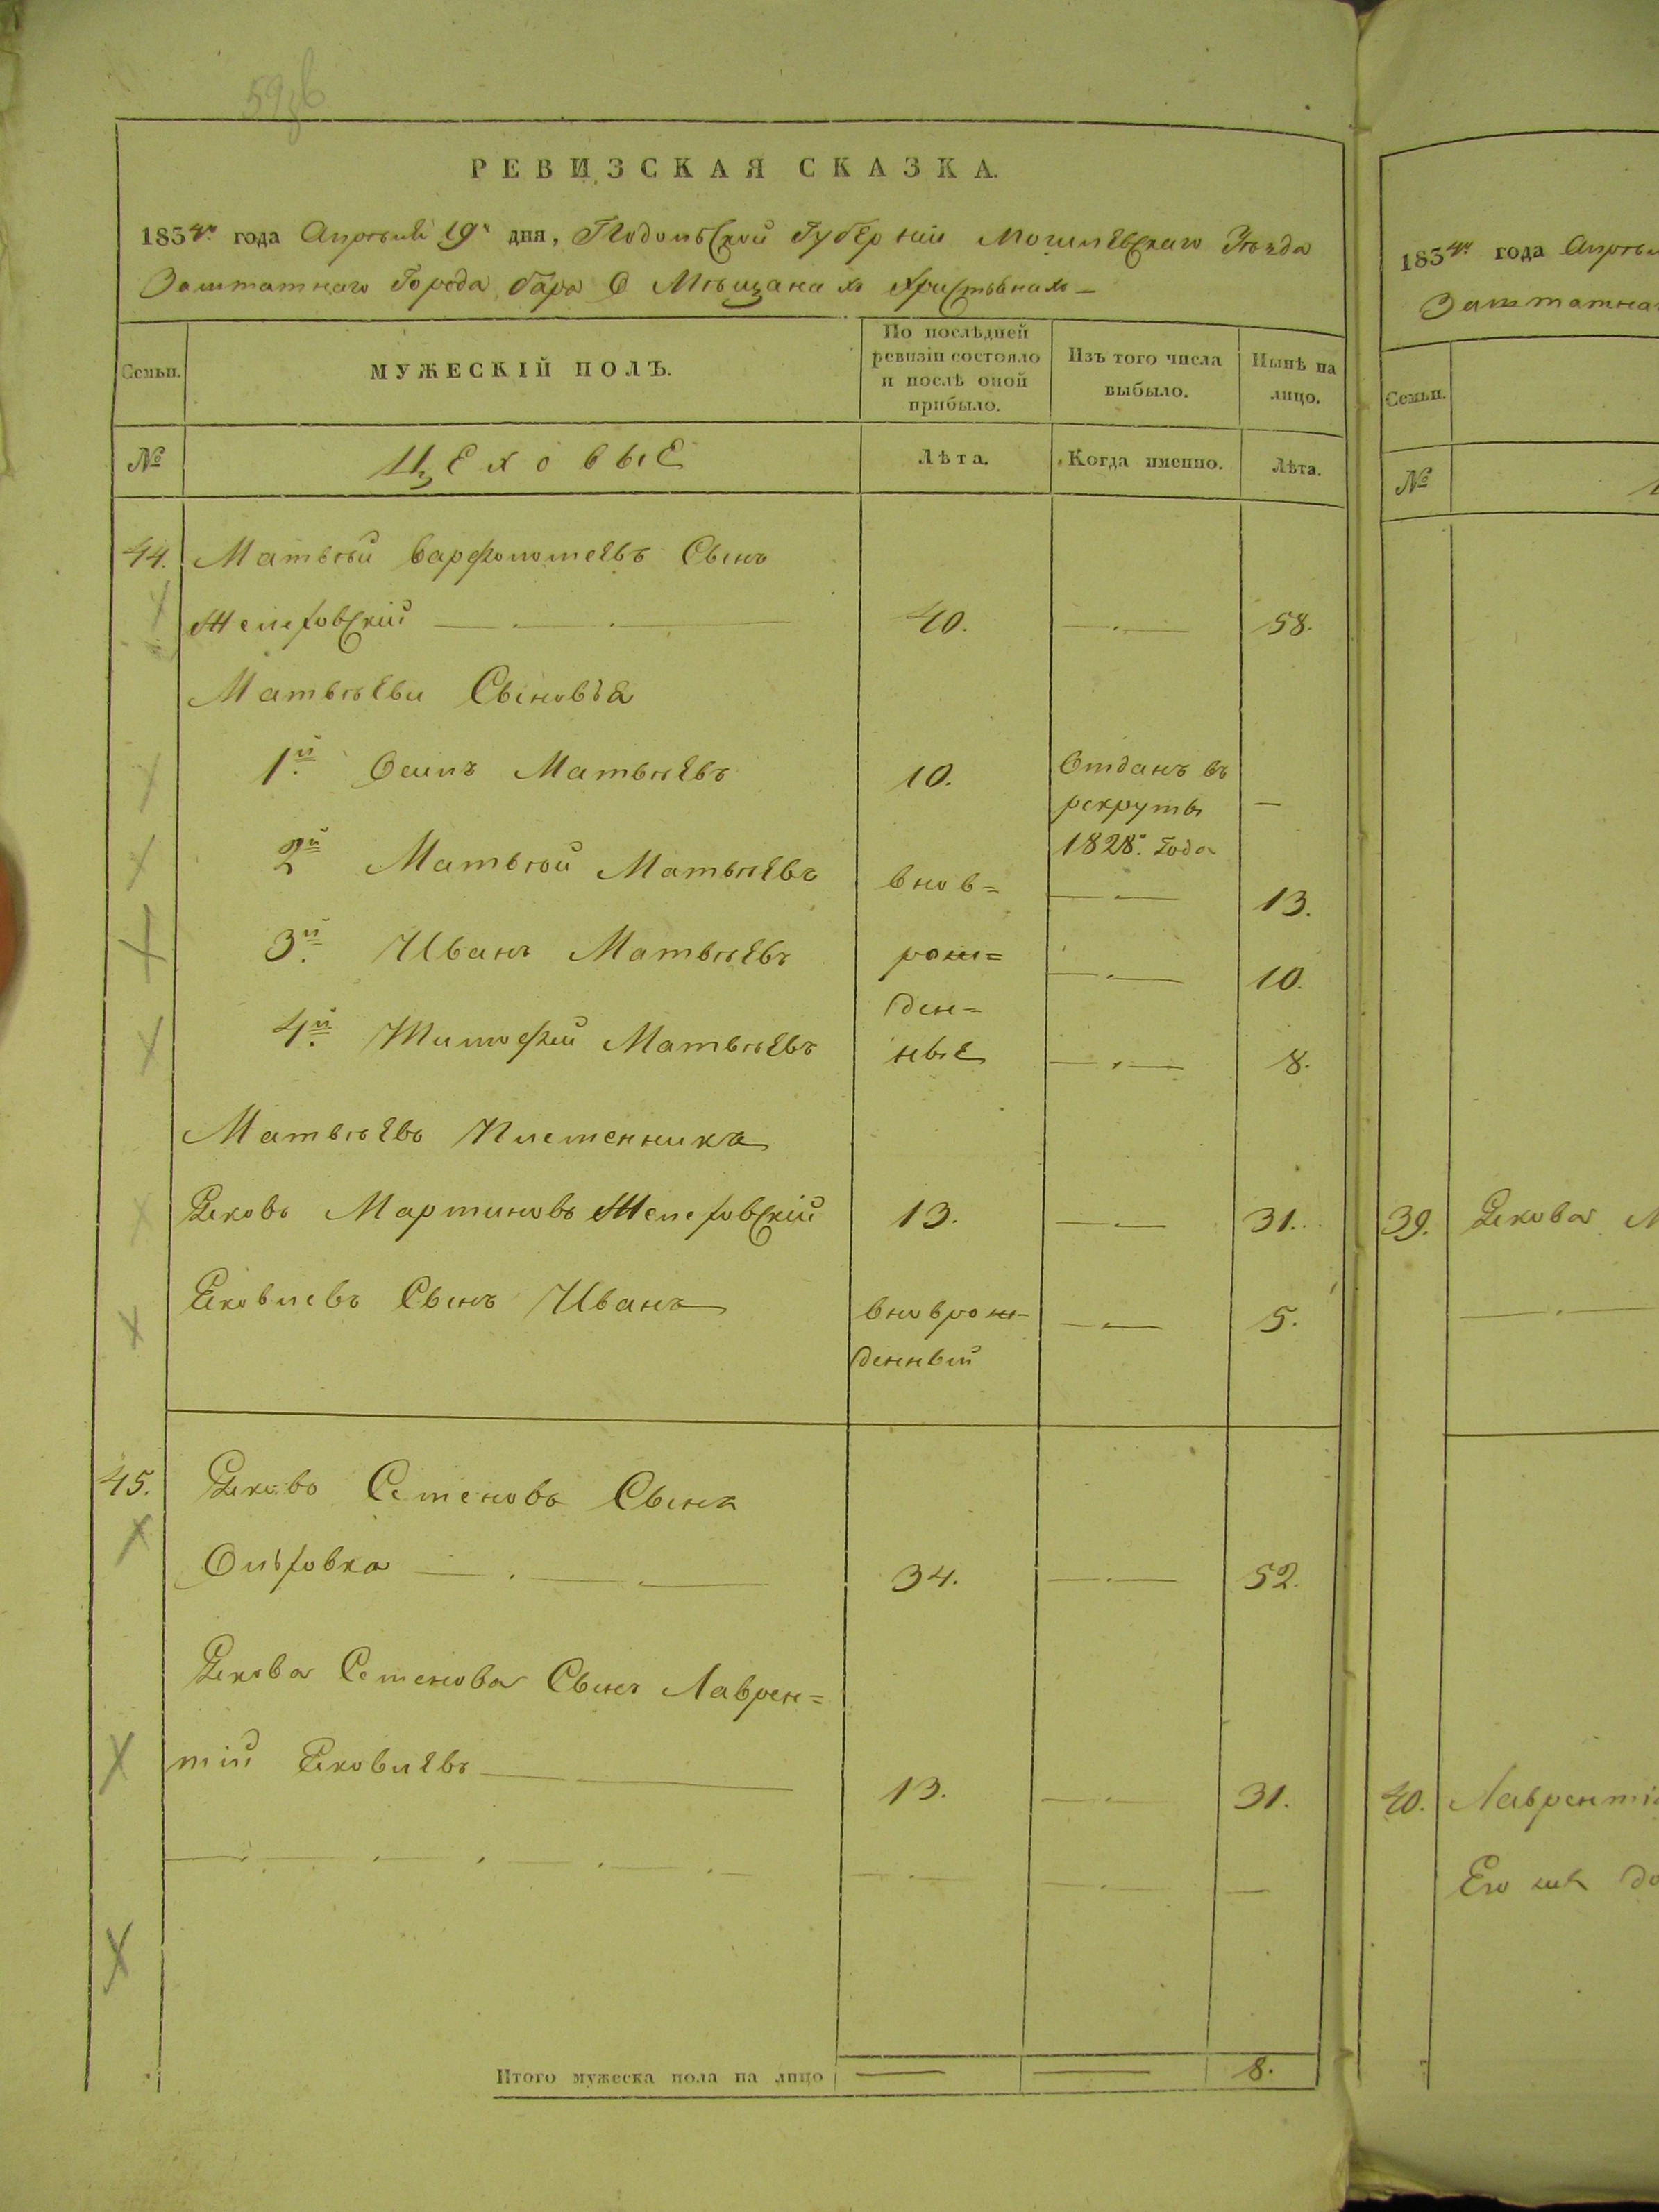 РЕВИЗСКАЯ СКАЗКА.
1834го года Апрѣля 19го дня, Подольской Губерніи Могилевскаго Уѣзда
Заштатнаго Города Бара О Мѣщанахъ Христьянахъ
Семьи.
МУЖЕСКІЙ ПОЛЪ.
По послѣдней
ревизіи состояло
и послѣ оной
прибыло.
Изъ того числа
выбыло.
Нынѣ на
лицо.
№
Цеховые
Лѣта.
Когда именно.
Лѣта.
44. Матвѣй Варфоломеевъ Сынъ
40. 58.
Матвѣеви Сыновья
1й Осипъ Матвѣевъ 10. Отданъ въ
рекруты —
1828го Года
2й Матвѣй Матвѣевъ внов= 13.
3й Иванъ Матвѣевъ рож= 10.
ден=
4й Тимофей Матвѣевъ ные 8.
Матвѣевъ Племенникъ
Яковъ Мартиновъ 13. 31.
Яковлевъ Сынъ Иванъ вноврож- 5.
денный
45. Яковъ Семеновъ Сынъ
34. 52.
Якова Семенова Сынъ Лаврен=
тій Яковлевъ 13. 31.
Итого мужеска пола на лицо 8.
1834го года
Семьи.
№
39. Якова
40.
Его же